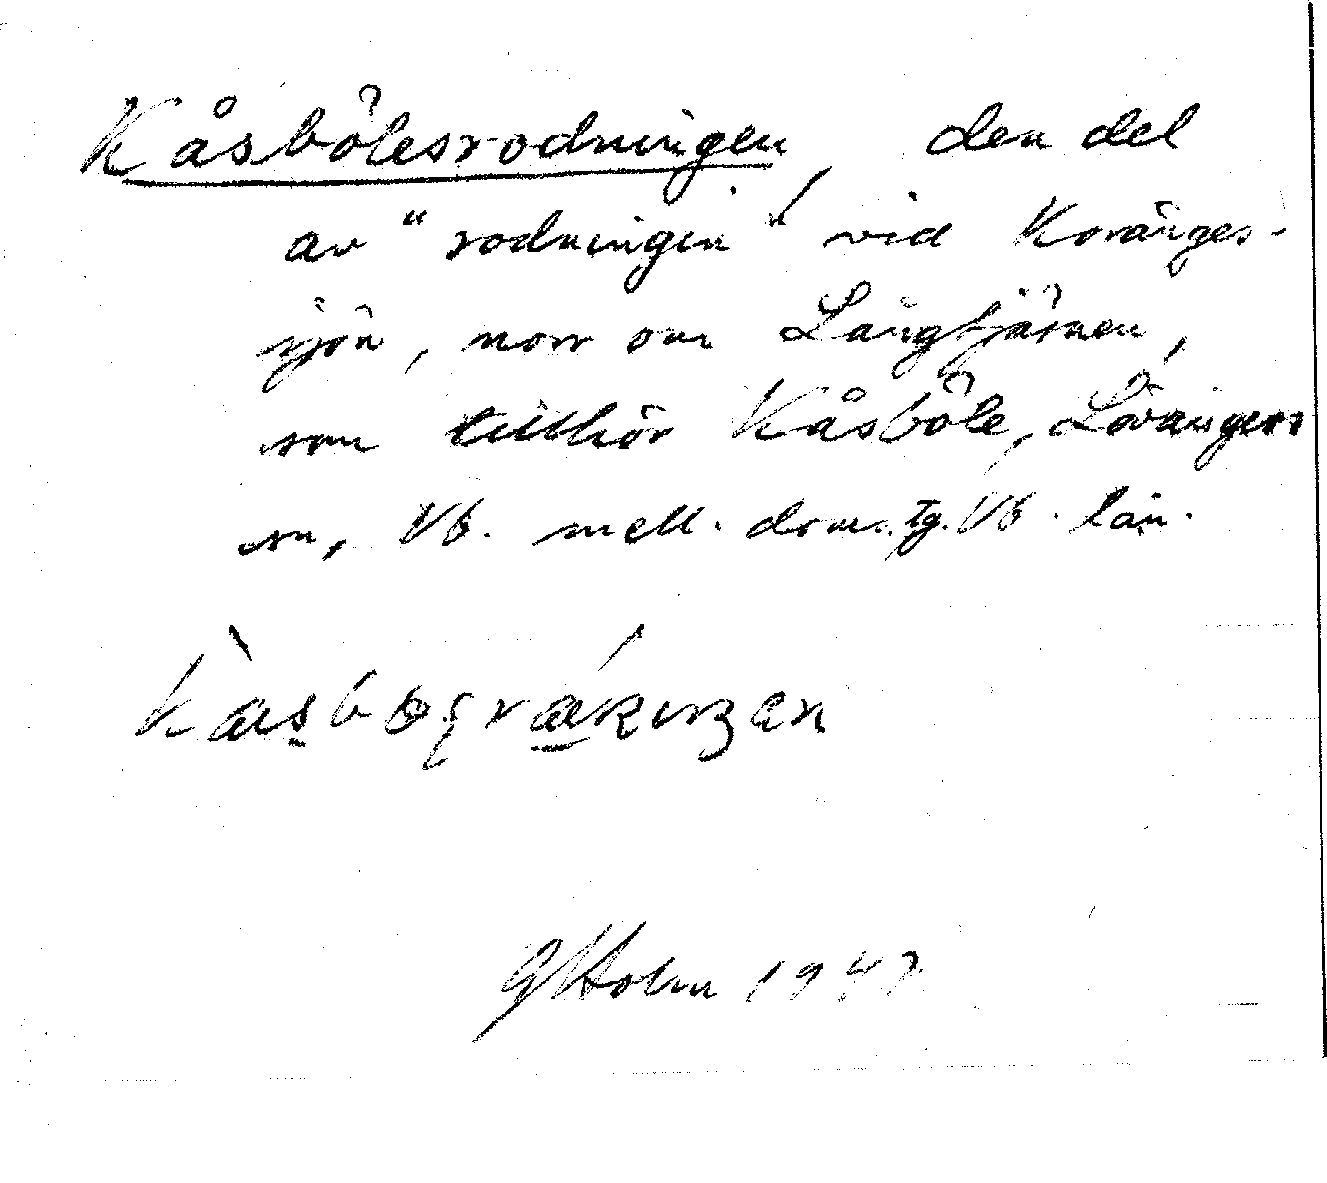 Kåsbölesrodningen, den del
av "rodningen" vid Kovänges-
sjön, norr om Långtjärnen,
som tillhör Kåsböle, Lövångers
sn, Vb. mell. doms.tg. Vb. län.
GHolm 1947